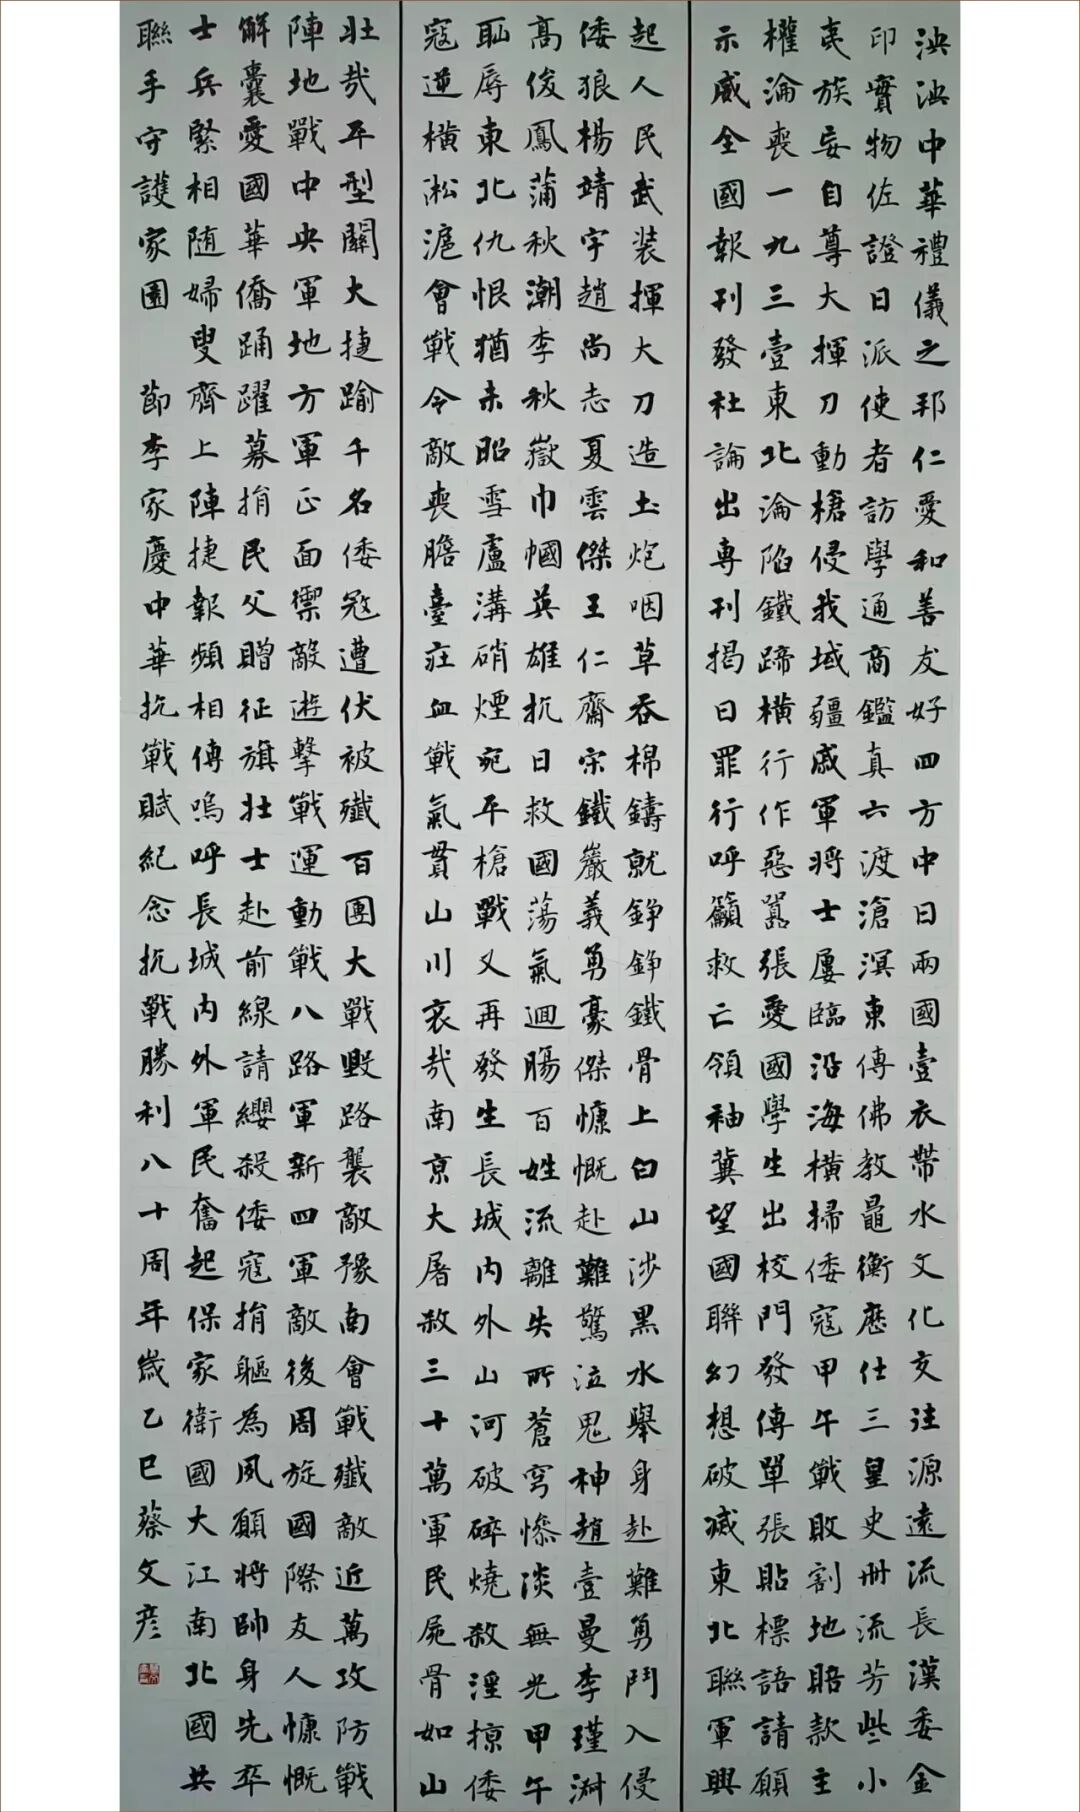 泱泱中華禮儀之邦仁愛和善友好四方中日兩國壹衣帶水文化交往源遠流長漢委金
印實物佐證日派使者訪學通商鑑真六渡滄溟東傳佛教鼂衡歷仕三皇史冊流芳些小
夷族妄自尊大揮刀動槍侵我域疆戚軍將士屢臨沿海橫掃倭寇甲午戰敗割地賠款主
權淪喪一九三壹東北淪陷鐵蹄橫行作惡囂張愛國學生出校門發傳單張貼標語請願
示威全國報刊發社論出專刊揭日罪行呼籲救亡領袖冀望國聯幻想破滅東北聯軍興
起人民武装揮大刀造土炮咽草吞棉鑄就錚錚鐵骨上白山涉黑水舉身赴難勇鬥入侵
倭狼楊靖宇趙尚志夏雲傑王仁齋宋鐵巖義勇豪傑慷慨赴難驚泣鬼神趙壹曼李瑾淵
高俊鳳蒲秋潮李秋嶽巾幗英雄抗日救國蕩氣迴腸百姓流離失所蒼穹慘淡無光甲午
恥辱東北仇恨猶未昭雪盧溝硝煙宛平槍戰又再發生長城內外山河破碎燒殺淫掠倭
寇逆橫淞滬會戰令敵喪膽臺莊血戰氣貫山川哀哉南京大屠殺三十萬軍民屍骨如山
壯哉平型關大捷踰千名倭寇遭伏被殲百團大戰毀路襲敵豫南會戰殲敵近萬攻防戰
陣地戰中央軍地方軍正面禦敵遊擊戰運動戰八路軍新四軍敵後周旋國際友人慷慨
解囊愛國華僑踊躍募捐民父贈征旗壯士赴前線請纓殺倭寇捐軀為夙願將帥身先卒
士兵緊相随婦叟齊上陣捷報頻相傳嗚呼長城內外軍民奮起保家衛國大江南北國共
聯手守護家園 節李家慶中華抗戰賦紀念抗戰勝利八十周年歲乙巳蔡文彦